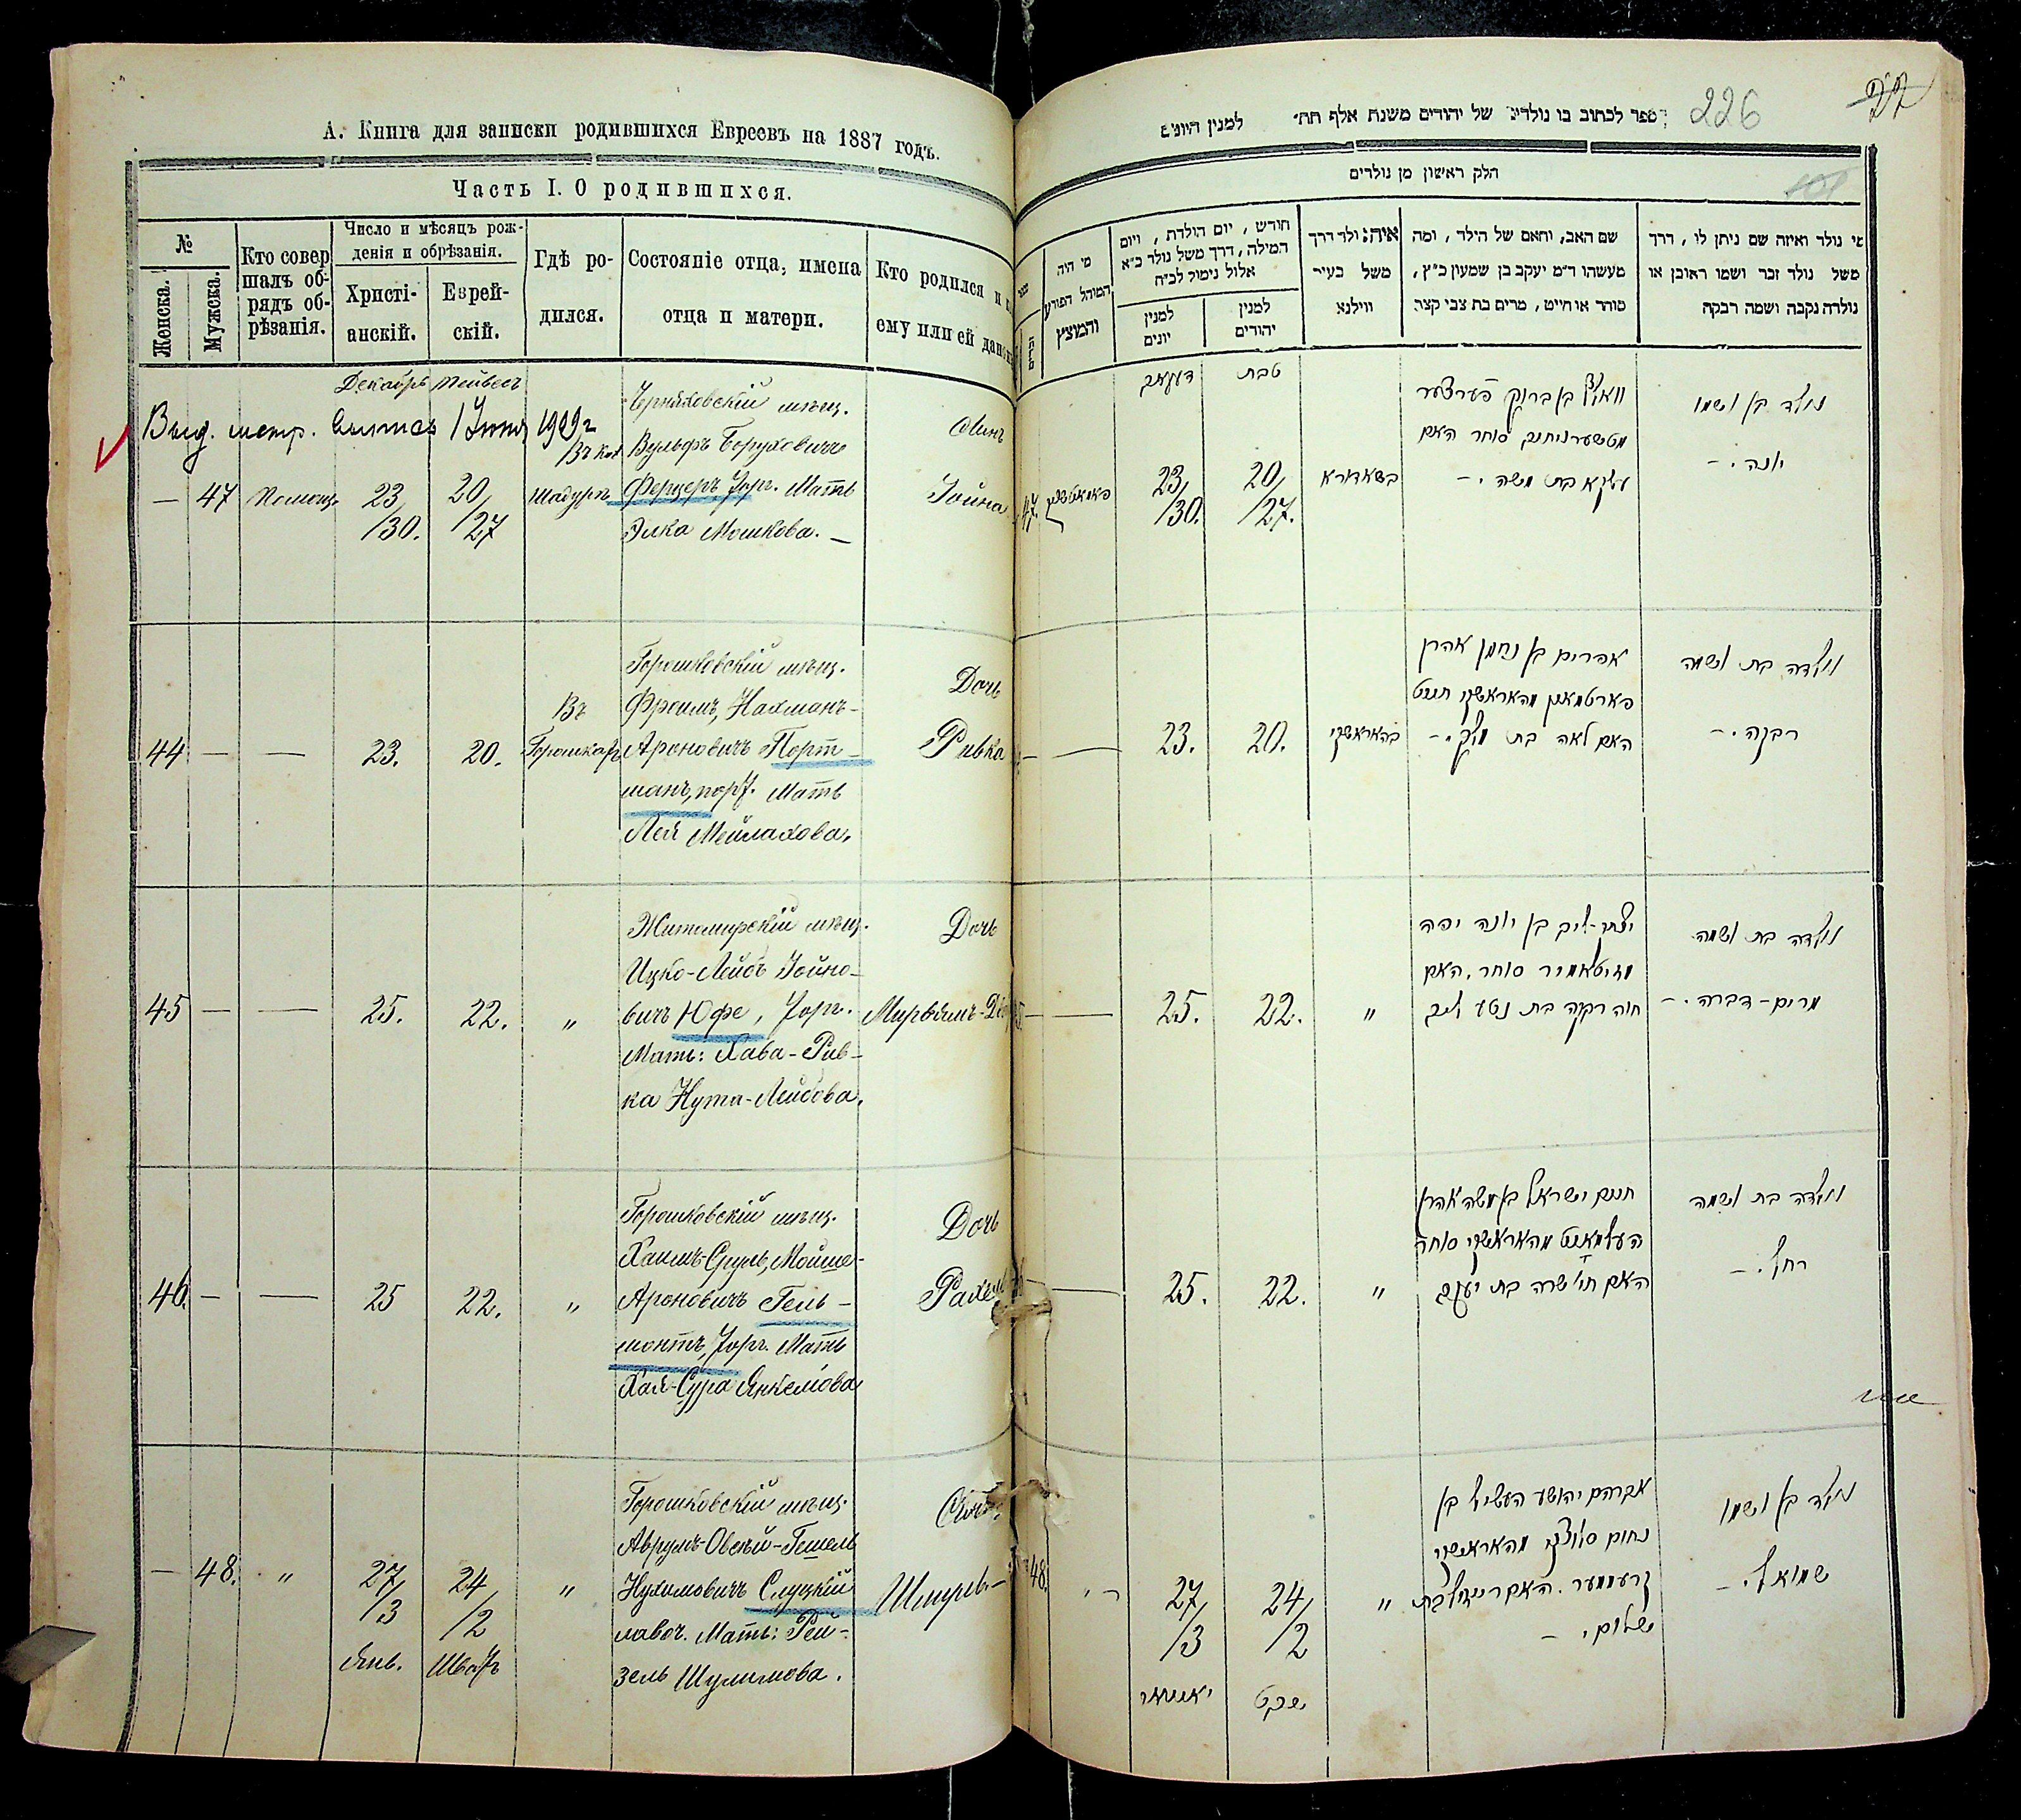 А. Книга для записки родившихся Евреевъ на 1887 годъ.
Часть I. О родившихся.
№
Женска.
Мужска.
Кто совер
шалъ об-
рядъ об-
рѣзанія.
Число и мѣсяцъ рож-
денія и обрѣзанія.
Христі-
анскій.
Еврей-
скій.
Гдѣ ро-
дился.
Состояніе отца, имена
отца и матери.
Кто родился и
ему или ей дано
Декабрь Тейвесъ
Выд. метр. выпись 1909г
— 47
23/30.
20/27
Черняховскій мѣщ.
Вульфъ Боруховичъ
Ферцеръ, Торг. Мать
Элка Мошкова. —
Сынъ
Іойна
44 — —
23.
20.
Въ
Горошкахъ
Горошковскій мѣщ.
Фроимъ, Нахманъ-
Ароновичъ Порт-
манъ, порт. Мать
Лея Мейлахова.
Дочь
Ривка
45 — —
25.
22.
„
Житомирскій мѣщ.
Ицко-Лейбъ Іойно-
вичъ Юфе, Торг.
Мать: Хава-Рив-
ка Нута-Лейбова.
Дочь
46. — —
25
22.
„
Горошковскій мѣщ.
Хаимъ-Сруль, Мойше-
Ароновичъ Гель-
монтъ, Торг. Мать
Хая-Сура Янкелова
Дочь
Рахель
— 48. „
27/3
Янв.
24/2
Шватъ
„
Горошковскій мѣщ.
Аврумъ-Овсей-Гешель
Нухимовичъ Слуцкій
лавоч. Мать: Рей-
зель Шулимова.
Сынъ
Шмуль —
226
ספר לכתוב בו נולדים של יהודים משנת אלף תת״ למנין היונים
חלק ראשון מן נולדים
מי היה
המוהל הפורע
והמוצץ
חודש, יום הולדת, ויום
המילה, דרך משל נולד כ״א
אלול נימול לכ״ח
למנין
יונים
למנין
יהודים
איה: ולד דרך
משל בעיר
ווילנא
שם האב, והאם של הילד, ומה
מעשהו ד״מ יעקב בן שמעון כ״ץ,
סוחר או חייט, מרים בת צבי קצר
מי נולד ואיזה שם ניתן לו, דרך
משל נולד זכר ושמו ראובן או
נולדה נקבה ושמה רבקה
טבת
47.
23/30.
20/27.
עלקא בת משה. —
נולד בן ושמו
יונה. —
23.
20.
בהאראשקי
אפרים בן נחמן אהרן
פארטמאן מהאראשקי חייט
האם לאה בת
נולדה בת ושמה
רבקה. —
25.
22.
„
יצחק-ליב בן יונה יפה
מזיטאמיר סוחר. האם
חוה רבקה בת נטע ליב
נולדה בת ושמה
מרים-דברה. —
25.
22.
„
חיים ישראל בן משה אהרן
העלמאנט מהאראשקי סוחר
האם חי׳ שרה בת יעקב
נולדה בת ושמה
רחל. —
48.
27/3
יאנואר
24/2
שבט
„
אברהם יהושע העשיל בן
נחום סלוצקי מהאראשקי
קרעמער. האם רייזיל בת
שלום. —
נולד בן ושמו
שמואל. —